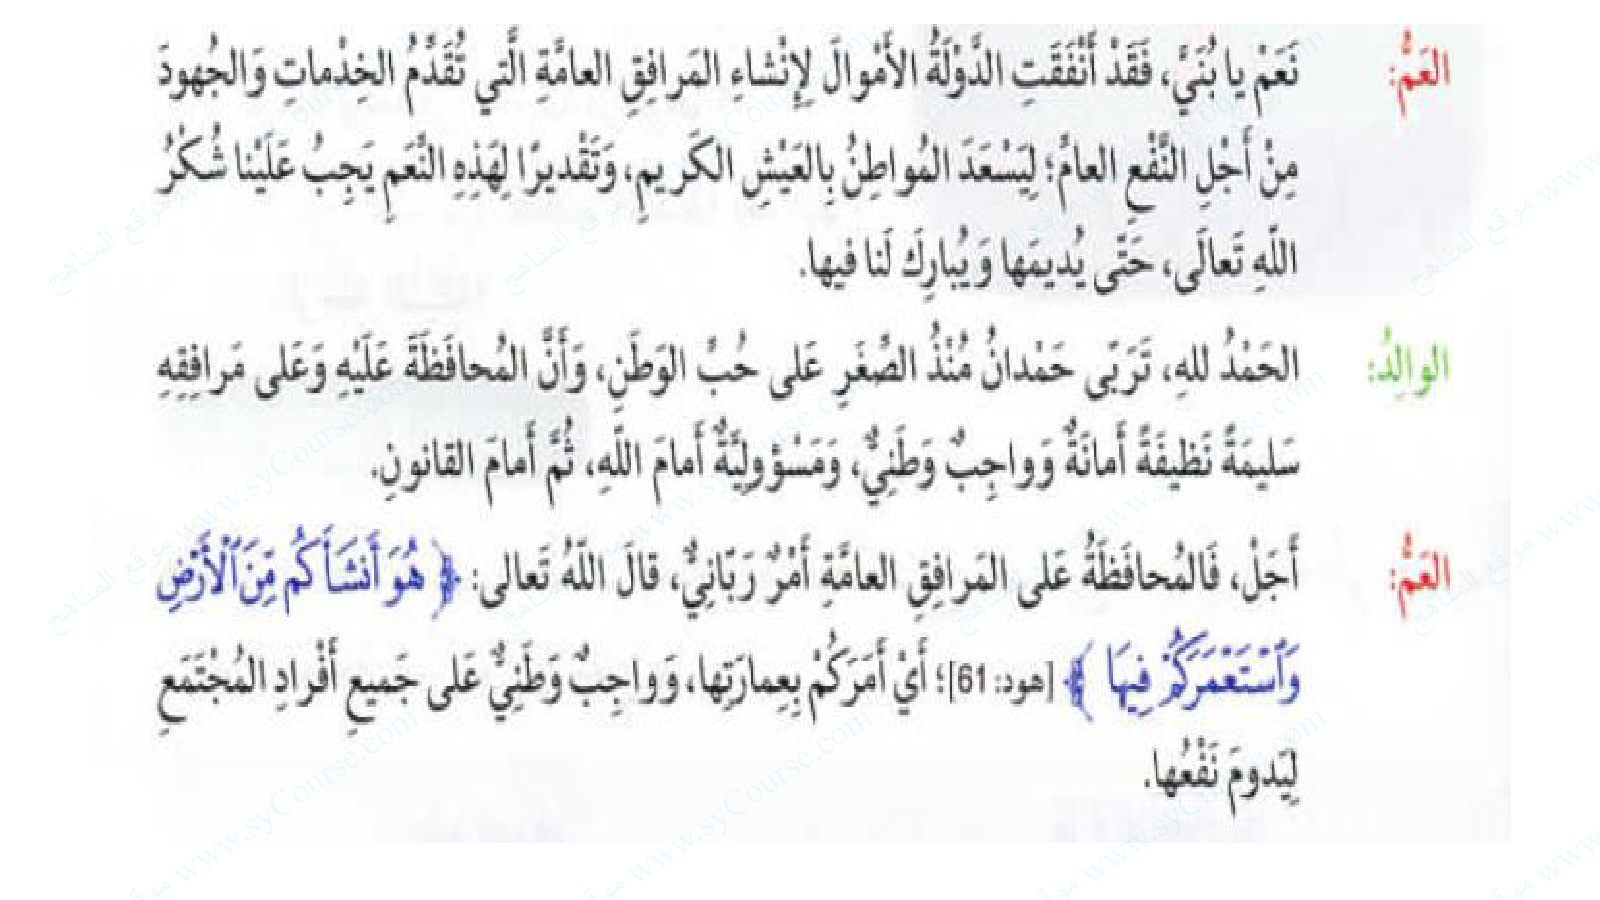 العَمُّ: نَعَمْ يا بُنَيَّ، فَقَدْ أَنْفَقَتِ الدَّوْلَةُ الأَمْوالَ لِإِنْشاءِ المَرافِقِ العامَّةِ الَّتي تُقَدِّمُ الخِدْماتِ وَالجُهودَ
مِنْ أَجْلِ النَّفْعِ العامِّ؛ لِيَسْعَدَ المُواطِنُ بِالعَيْشِ الكَريمِ، وَتَقْديرًا لِهَذِهِ النِّعَمِ يَجِبُ عَلَيْنا شُكْرُ
اللَّهِ تَعالَى، حَتَّى يُديمَها وَيُبارِكَ لَنا فيها.
الوالِدُ: الحَمْدُ للهِ، تَرَبَّى حَمْدانُ مُنْذُ الصِّغَرِ عَلى حُبِّ الوَطَنِ، وَأَنَّ المُحافَظَةَ عَلَيْهِ وَعَلى مَرافِقِهِ
سَليمَةً نَظيفَةً أَمانَةٌ وَواجِبٌ وَطَنِيٌّ، وَمَسْؤولِيَّةٌ أَمامَ اللَّهِ، ثُمَّ أَمامَ القانونِ.
العَمُّ: أَجَلْ، فَالمُحافَظَةُ عَلى المَرافِقِ العامَّةِ أَمْرٌ رَبّانِيٌّ، قالَ اللَّهُ تَعالى: ﴿ هُوَ أَنشَأَكُم مِّنَ ٱلْأَرْضِ
وَٱسْتَعْمَرَكُمْ فِيهَا ﴾ [هود: 61]؛ أَيْ أَمَرَكُمْ بِعِمارَتِها، وَواجِبٌ وَطَنِيٌّ عَلى جَميعِ أَفْرادِ المُجْتَمَعِ
لِيَدومَ نَفْعُها.
موقع المناهج www.syCourse.com